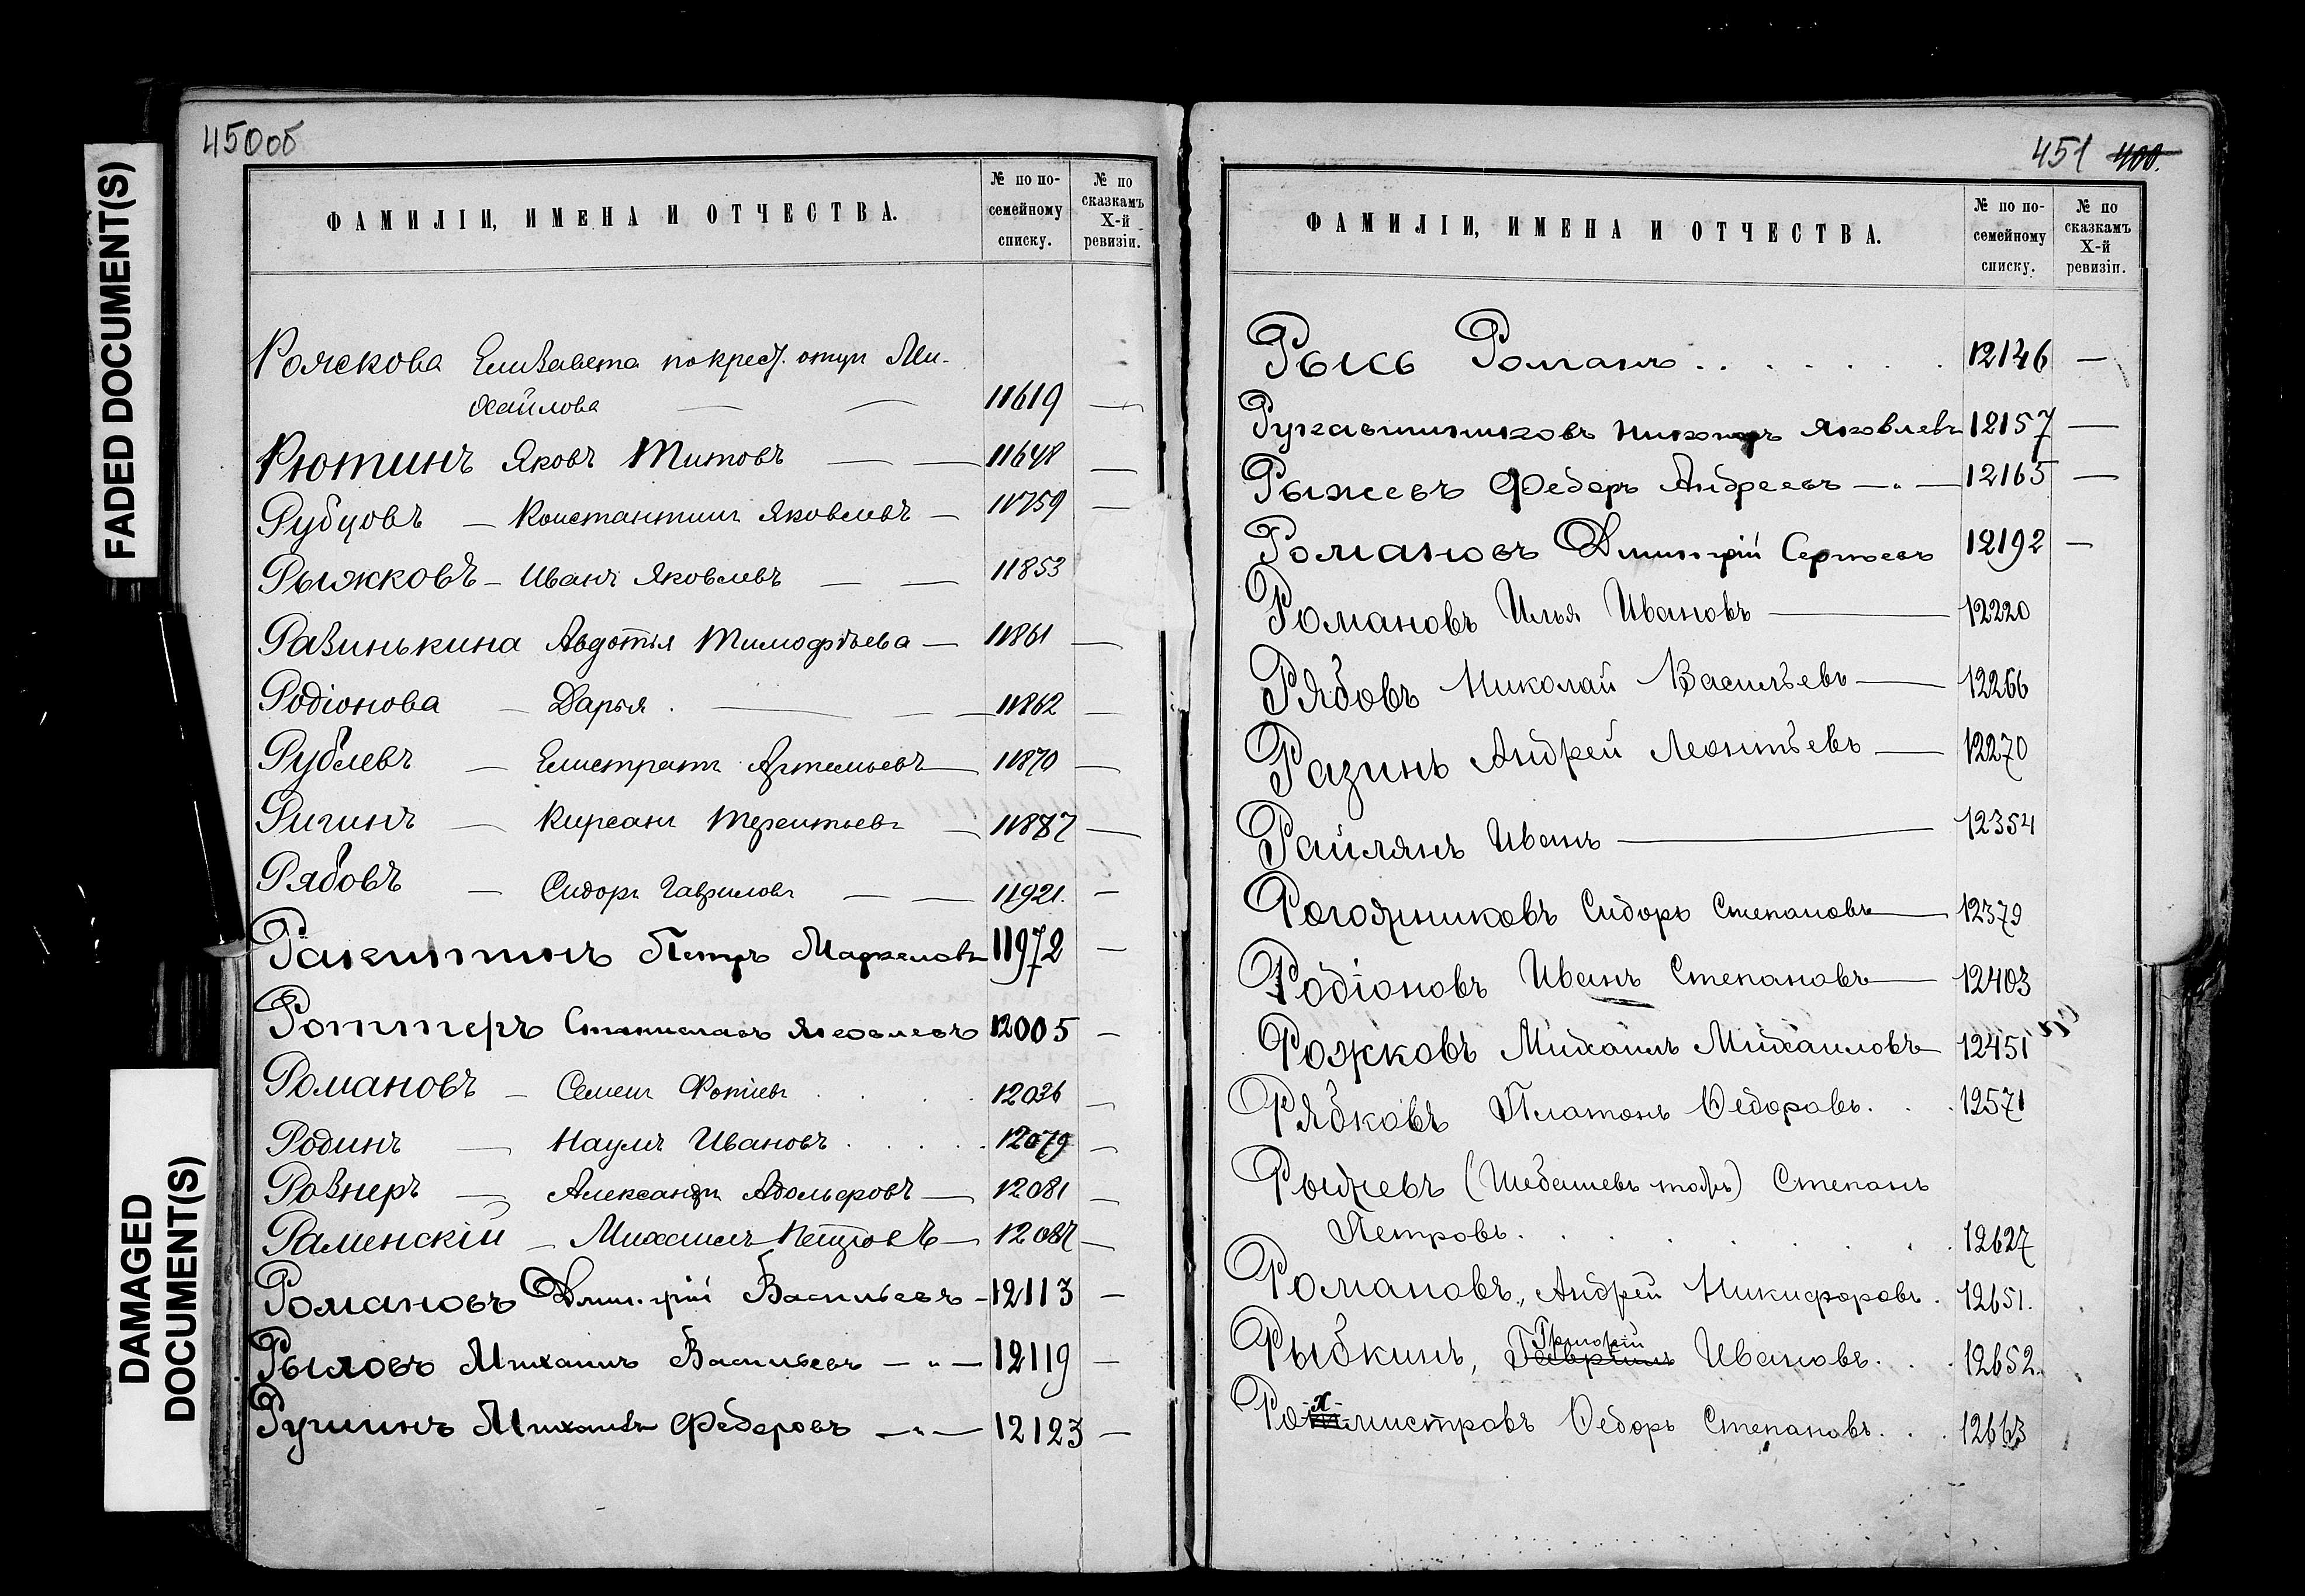 FADED DOCUMENT(S)
DAMAGED
DOCUMENT(S)
450об
ФАМИЛІИ, ИМЕНА И ОТЧЕСТВА.
№ по по-
семейному
списку.
№ по
сказкамъ
X-й
ревизіи.
Рояскова Елизавета по крест. отцу Ми-
хайлова — — 11619 —
Рютинъ Яковъ Титовъ — — 11648 —
Рубцовъ — Константинъ Яковлевъ — 11759 —
Рыжковъ — Иванъ Яковлевъ — — 11853
Развинькина Авдотья Тимофѣева — 11861 —
Родіонова — Дарья . — — — 11862 —
Рублевъ — Елистратъ Артемьевъ — 11870 —
Ригинъ — Кирсанъ Терентьевъ — 11887 —
Рябовъ — Сидоръ Гавриловъ — — 11921. —
Ракитинъ Петръ Маркеловъ 11972 —
Роттеръ Станиславъ Яковлевъ 12005 —
Романовъ — Семенъ Фотіевъ . . . 12036 —
Родинъ — Наумъ Ивановъ . . . 12079 —
Ровнеръ — Александръ Адольфовъ — 12081 —
Раменскій — Михаилъ Петровъ — 12087 —
Романовъ Дмитрій Васильевъ — 12113 —
Рыловъ Михаилъ Васильевъ — " — 12119 —
Ружинъ Михаилъ Федоровъ — " — 12123 —
451 400.
ФАМИЛІИ, ИМЕНА И ОТЧЕСТВА.
№ по по-
семейному
списку.
№ по
сказкамъ
X-й
ревизіи.
Рысь Романъ . . . . . . . 12146 —
Рукавишниковъ Никаноръ Яковлевъ 12157 —
Рыжевъ Федоръ Андреевъ — " — 12165 —
Романовъ Дмитрій Сергѣевъ 12192 —
Романовъ Илья Ивановъ — 12220
Рябовъ Николай Васильевъ — 12266
Разинъ Андрей Леонтьевъ — 12270
Райлянъ Иванъ — 12354
Рогожниковъ Сидоръ Степановъ — 12379
Родіоновъ Иванъ Степановъ — 12403
Рожковъ Михаилъ Михаиловъ — 12451
Рябковъ Платонъ Ѳедоровъ. . . 12571
Рыжевъ (Шебашевъ тожъ) Степанъ
Петровъ. . . . . . . 12627
Романовъ, Андрей Никифоровъ. 12651.
Григорій
Рыбкинъ, Гавріилъ Ивановъ. . . 12652.
Рохмистровъ Ѳедоръ Степановъ. . . 12663